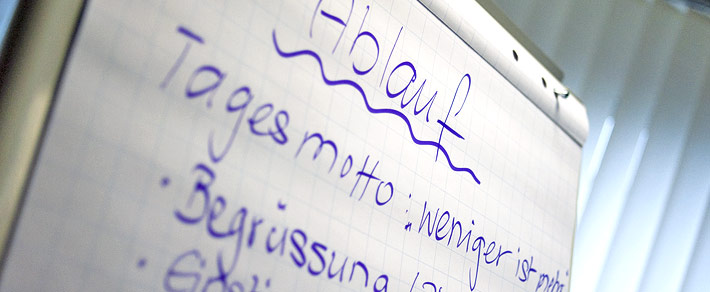 Ablauf
Tagesmotto: weniger ist mehr
• Begrüssung